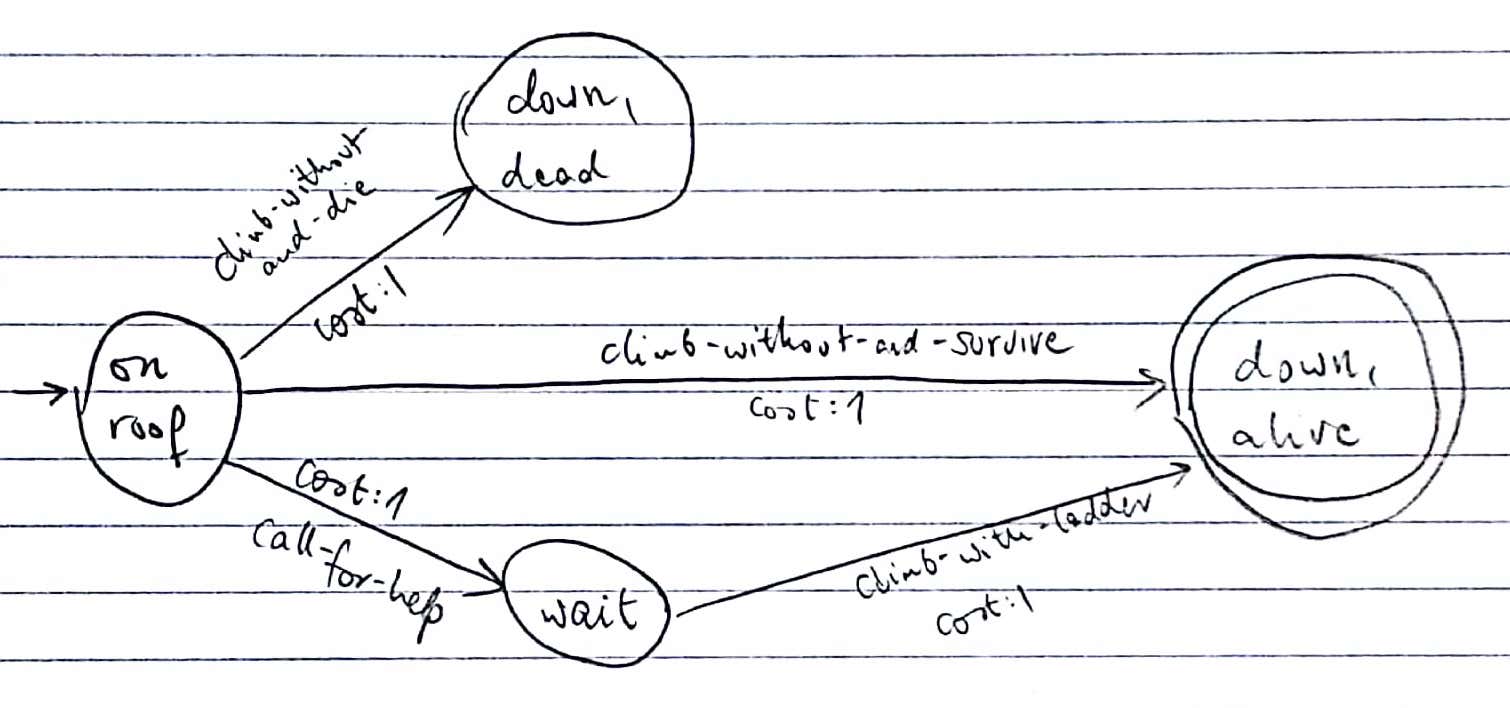 down,
dead
climb-without
and-die
cost:1
on
roof
climb-without-and-survive
cost:1
down,
alive
cost:1
call-
for-help
wait
climb-with-ladder
cost:1